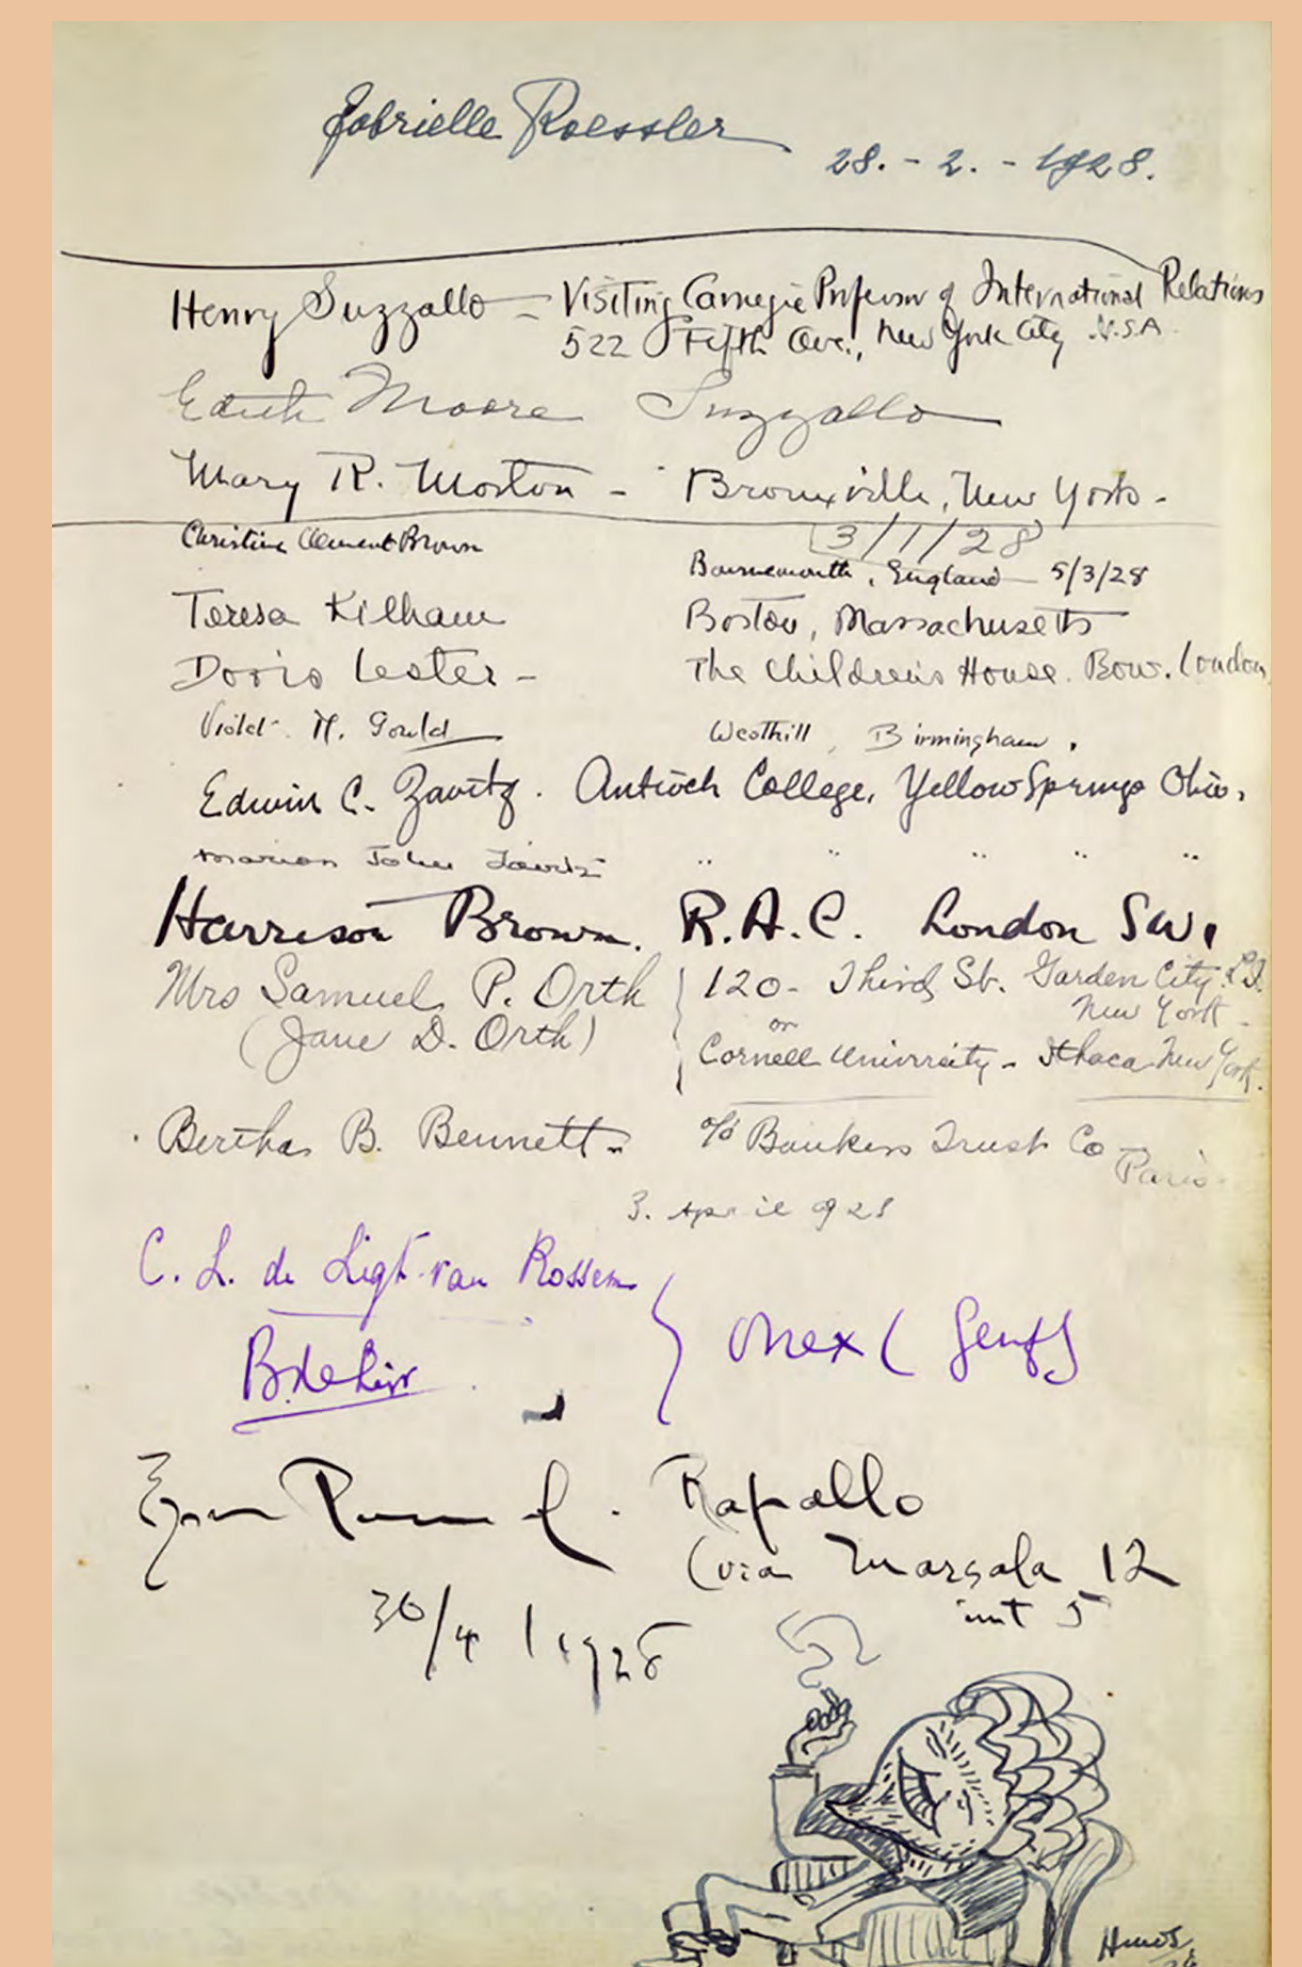 Gabrielle Roessler
28. - 2. - 1928.
Henry Suzzallo - Visiting Carnegie Professor of International Relations
522 Fifth Ave., New York City U.S.A.
Edith Moore Suzzallo
Mary R. Morton - Bronxville, New York -
3/1/28
Christine Clement Brown
Bournemouth, England 5/3/28
Teresa Kilham Boston, Massachusetts
Doris Lester - The Children's House. Bow. London
Violet M. Gould Westhill, Birmingham.
Edwin C. Zavitz. Antioch College, Yellow Springs Ohio.
Marion John Zavitz " " " " "
Harrison Brown. R.A.C. London SW.
Mrs Samuel P. Orth 120 - Third St. Garden City. L.I.
New York
(Jane D. Orth) or
Cornell University - Ithaca New York.
Bertha B. Bennett - c/o Bankers Trust Co
Paris
3. April 1928
C. L. de Ligt-van Rossem
B. de Ligt Onex (Genf)
Ezra Pound. Rapallo
(via Marsala 12
int 5
30/4 1928